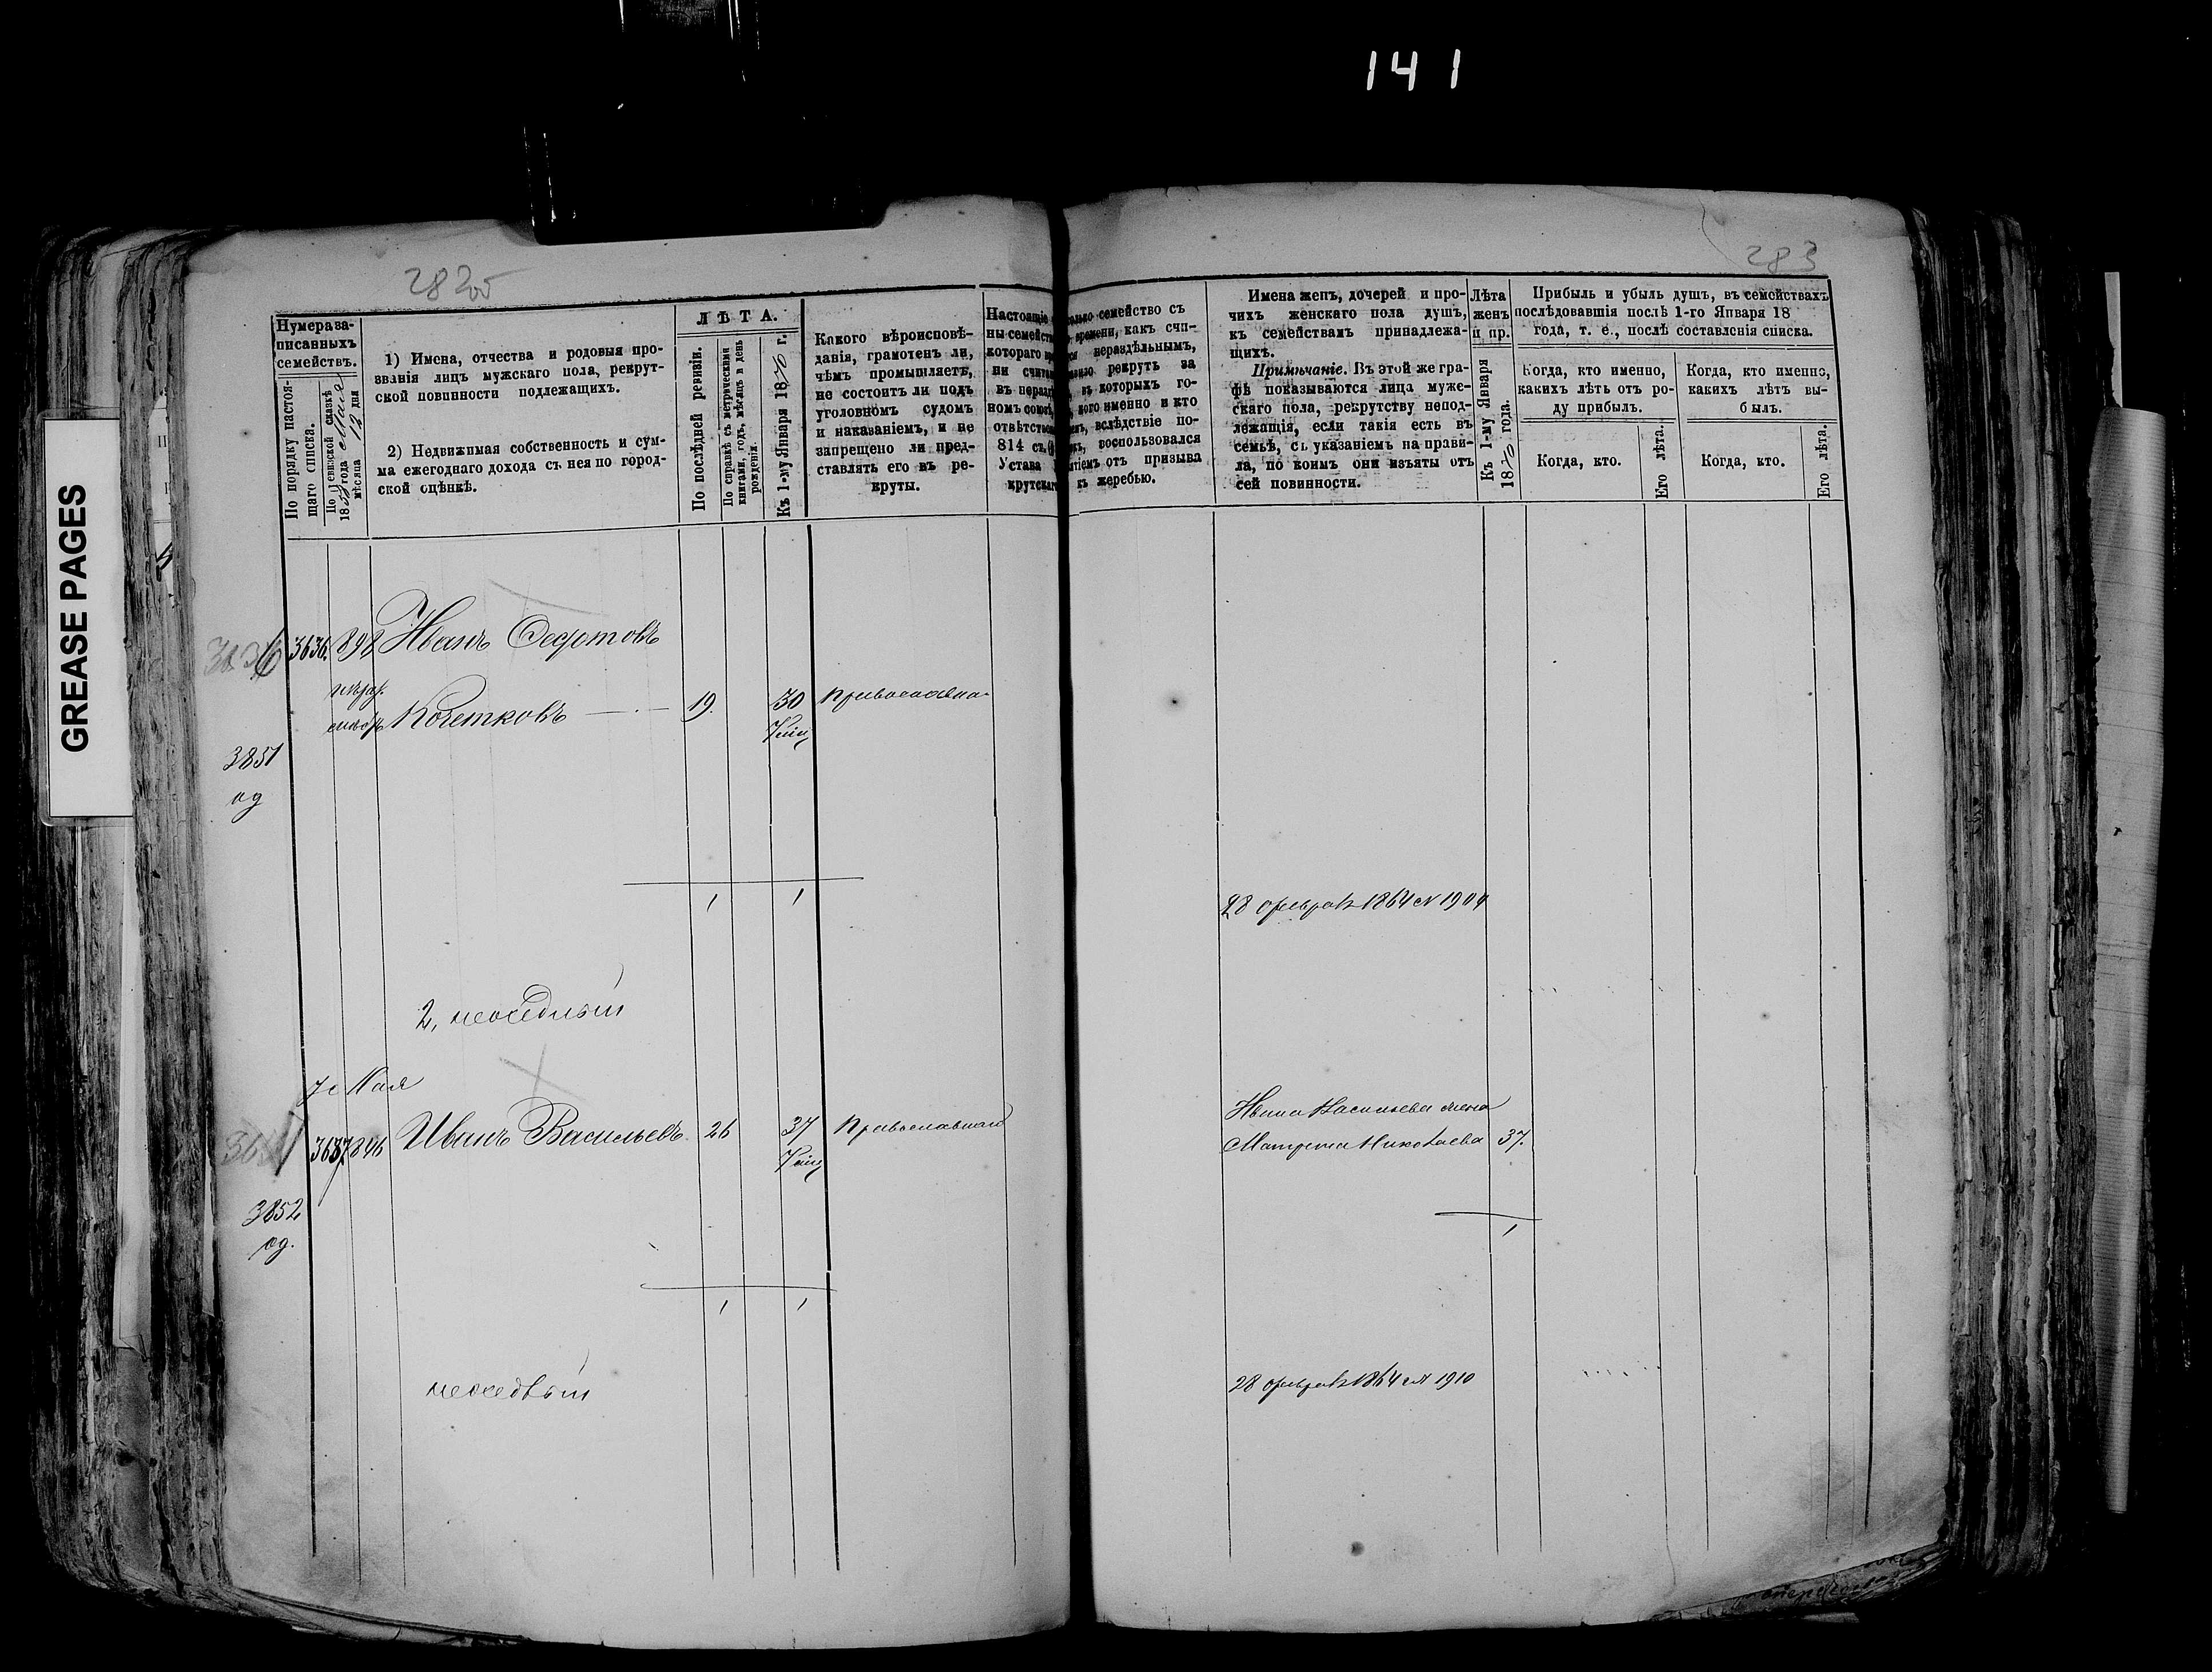 141
GREASE PAGES
283
Нумера за-
писанныхъ
семействъ.
По порядку настоя-
щаго списка.
По ревизской сказкѣ
1858 года
мѣсяца 12 дня
1) Имена, отчества и родовыя про-
званія лицъ мужскаго пола, рекрут-
ской повинности подлежащихъ.
2) Недвижимая собственность и сум-
ма ежегоднаго дохода съ нея по город-
ской оцѣнкѣ.
ЛѢТА.
По послѣдней ревизіи.
По справкѣ съ метрическими
книгами, годъ, мѣсяцъ и день
рожденія.
Къ 1-му Января 1870 г.
Какого вѣроисповѣ-
данія, грамотенъ ли,
чѣмъ промышляетъ,
не состоитъ ли подъ
уголовномъ судомъ
и наказаніемъ, и не
запрещено ли пред-
ставлять его въ ре-
круты.
Настоящіе
ны семейств
котораго
ни счита
въ нераз
номъ союз
отвѣтств
814 ст.
Устава
крутскаг
семейство съ
времени, какъ счи-
нераздѣльнымъ,
рекрутъ за
въ которыхъ го-
кого именно и кто
вслѣдствіе по-
воспользовался
отъ призыва
къ жеребью.
Имена женъ, дочерей и про-
чихъ женскаго пола душъ,
къ семействамъ принадлежа-
щихъ.
Примѣчаніе. Въ этой же гра-
фѣ показываются лица муже-
скаго пола, рекрутству непод-
лежащія, если такія есть въ
семьѣ, съ указаніемъ на прави-
ла, по коимъ они изъяты отъ
сей повинности.
Лѣта
женъ
и пр.
Къ 1-му Января
1870 года.
Прибыль и убыль душъ, въ семействахъ
послѣдовавшія послѣ 1-го Января 18
года, т. е., послѣ составленія списка.
Когда, кто именно,
какихъ лѣтъ отъ ро-
ду прибылъ.
Когда, кто именно,
какихъ лѣтъ вы-
былъ.
Когда, кто.
Его лѣта.
Когда, кто.
Его лѣта.
3636 3636. 898 Иванъ Федотовъ
Кочетковъ 19. 30 Православна
3851
од
1 1
28 февраля 1864 № 1904
2, неоседлый
7 Мая
3637 846 Иванъ Васильевъ 26 37 Православный
Ивана Васильева жена
Матрена Николаева 37.
3852
од.
1
1 1
неоседлый
28 февраля 1864 № 1910